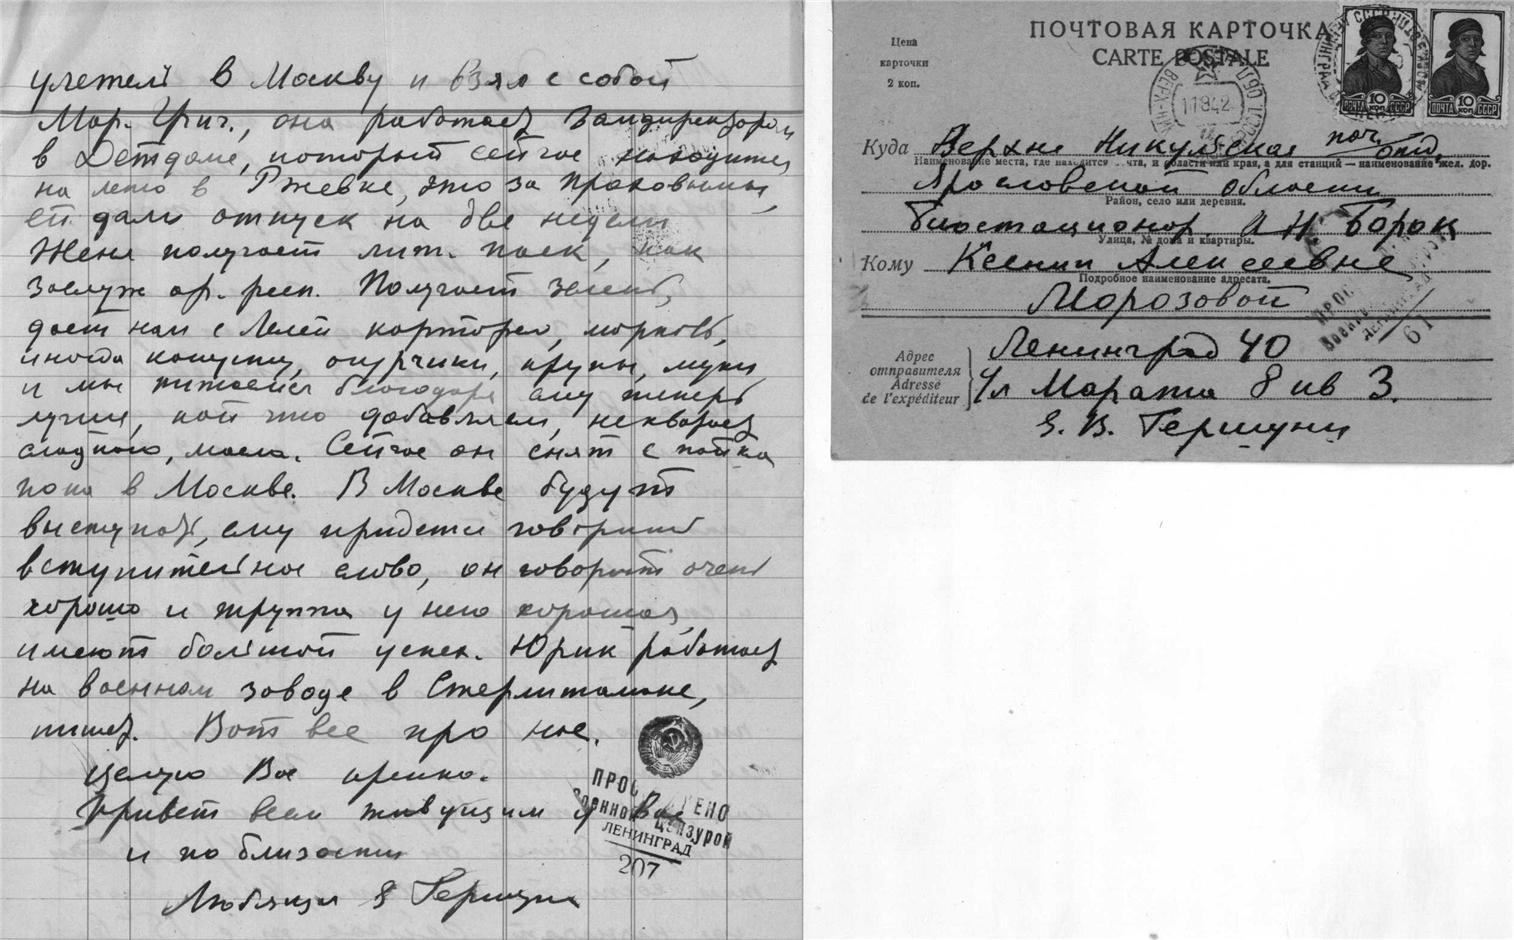 улетел в Москву и взял с собой
Мар. Григ., она работает
в Детдоме, который сейчас находится
на лето в Ржевке, это за Пороховыми,
ей дали отпуск на две недели
Женя получает лит. паек, как
заслуж ар. респ. Получает зелень,
дает нам с Лелей картофель, морковь,
иногда капусту, огурчики, крупы, муки
и мы питаемся благодаря ему теперь
лучше, кой что добавляем, нехватает
сладкого, масла. Сейчас он снят с пайка
пока в Москве. В Москве будут
выступать, ему придется говорить
вступительное слово, он говорит очень
хорошо и труппа у него хорошая
имеют большой успех. Юрик работает
на военном заводе в Стерлитамаке,
пишет. Вот все про нас.
Целую Вас крепко.
Привет всем живущим у Вас
и по близости
Любящая Е Гершуни
ПРОС ЕНО
Военной Цензурой
ЛЕНИНГРАД
207
ПОЧТОВАЯ КАРТОЧКА
CARTE POSTALE
Цена
карточки
2 коп.
ПОЧТА 10 КОП. СССР
ПОЧТА 10 КОП. СССР
11 8 42
Куда Верхне Никульское поч. отд.
Наименование места, где находится почта, и области или края, а для станций — наименование жел. дор.
Ярославской области
Район, село или деревня.
Биостационар. А Н Борок
Улица, № дома и квартиры.
Кому Ксении Алексеевне
Подробное наименование адресата.
Морозовой
ПРОС
Военной
ЛЕНИНГРАД
61
Адрес
отправителя
Adresse
de l'expéditeur
Ленинград 40
Ул Марата 8 кв 3.
Е. В. Гершуни